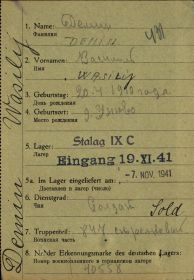 Demin Wasilij
1. Name: Демин
Фамилия
DEMIN
2. Vornamen: Василий
Имя
WASILIJ
3. Geburtstag: 20.4.1910 года
День рождения
4. Geburtsort:
Место рождения
5. Lager: Stalag IX C
Лагер Eingang 19. XI. 41
5a. Im Lager eingeliefert am: - 7. NOV. 1941
Доставлен в лагер (число)
6. Dienstgrad: Солдат
Чин Sold.
7. Truppenteil: 847
Воинская часть
8. Nr/Ner Erkennungsmarke des deutschen Lagers:
Номер военнопленного в германском лагере